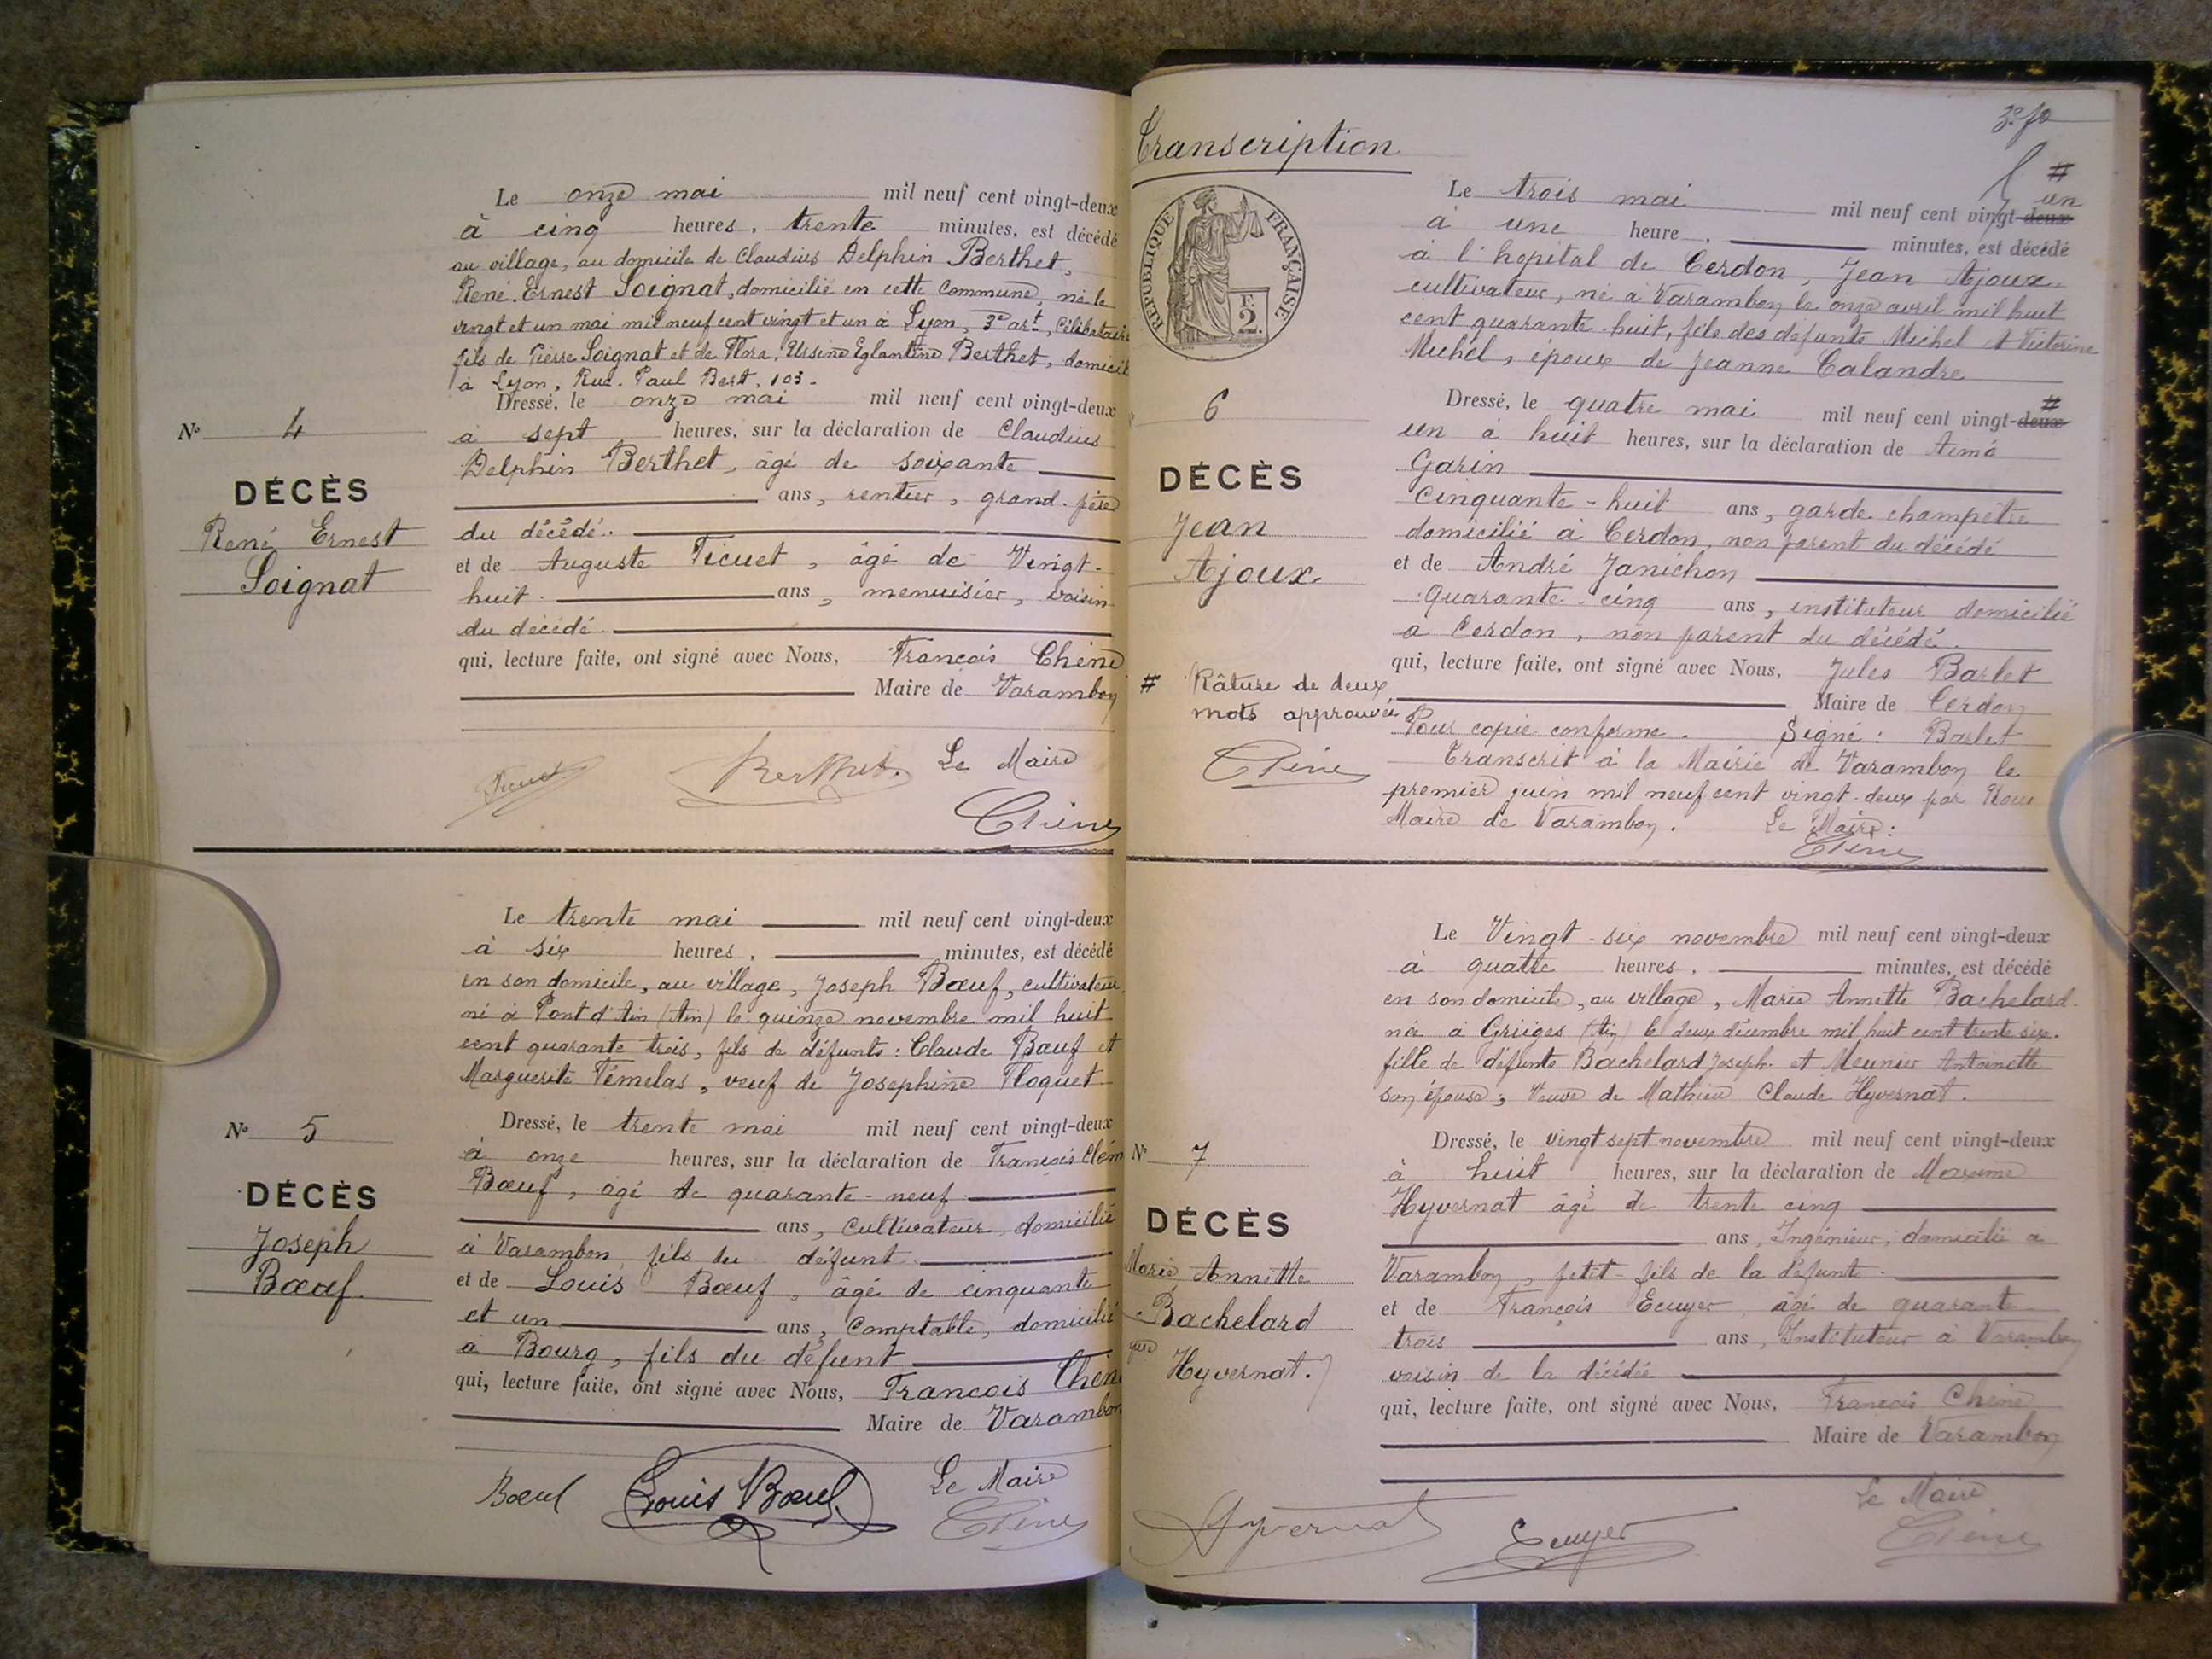 Le onze mai mil neuf cent vingt-deux
à cinq heures, trente minutes, est décédé
au village, au domicile de Claudius Delphin Berthet,
René Ernest Soignat, domicilié en cette commune, né le
vingt et un mai mil neuf cent vingt et un à Lyon, 3e art, Célibataire
fils de Pierre Soignat et de Flora, Ursine Eglantine Berthet, domicil
à Lyon, Rue Paul Bert, 103.
Dressé, le onze mai mil neuf cent vingt-deux
à sept heures, sur la déclaration de Claudius
Delphin Berthet, âgé de soixante
ans, rentier, grand-père
du décédé.
et de Auguste Ticuet, âgé de Vingt-
huit ans, menuisier, voisin
du décédé
qui, lecture faite, ont signé avec Nous, François Chêne
Maire de Varambon
Nº 4
DÉCÈS
René Ernest
Soignat
Ticuet Berthet. Le Maire
Chêne
Le trente mai mil neuf cent vingt-deux
à six heures, minutes, est décédé
en son domicile, au village, Joseph Bœuf, cultivateur,
né à Pont d'Ain (Ain) le quinze novembre mil huit
cent quarante trois, fils de défunts : Claude Bœuf et
Marguerite Témelas, veuf de Josephine Floquet
Dressé, le trente mai mil neuf cent vingt-deux
à onze heures, sur la déclaration de François Clém
Bœuf, âgé de quarante-neuf
ans, cultivateur, domicilié
à Varambon, fils du défunt
et de Louis Bœuf, âgé de cinquante
et un ans, Comptable, domicilié
à Bourg, fils du défunt
qui, lecture faite, ont signé avec Nous, François Chêne
Maire de Varambon
Nº 5
DÉCÈS
Joseph
Bœuf.
Bœuf Louis Bœuf Le Maire
Chêne
Transcription
RÉPUBLIQUE FRANÇAISE
F.
2
Le trois mai mil neuf cent vingt-deux # un
à une heure, minutes, est décédé
à l'hopital de Cerdon, Jean Ajoux
cultivateur, né à Varambon le onze avril mil huit
cent quarante-huit, fils des défunts Michel et Victorine
Michel, époux de Jeanne Calandre
Dressé, le quatre mai mil neuf cent vingt-deux #
un à huit heures, sur la déclaration de Aimé
Garin
Cinquante-huit ans, garde champêtre
domicilié à Cerdon, non parent du décédé
et de André Janichon
Quarante-cinq ans, instituteur domicilié
à Cerdon, non parent du décédé.
qui, lecture faite, ont signé avec Nous, Jules Barlet
Maire de Cerdon
Pour copie conforme. Signé : Barlet
Transcrit à la Mairie de Varambon le
premier juin mil neuf cent vingt-deux par Nous
Maire de Varambon. Le Maire :
Chêne
6
DÉCÈS
Jean
Ajoux
# Râture de deux
mots approuvée
Chêne
Le Vingt-six novembre mil neuf cent vingt-deux
à quatre heures, minutes, est décédé
en son domicile, au village, Marie Annette Bachelard
née à Grièges (Ain) le deux décembre mil huit cent trente six.
fille de défunts Bachelard Joseph et Meunier Antoinette
son épouse ; Veuve de Mathieu Claude Hyvernat.
Dressé, le vingt sept novembre mil neuf cent vingt-deux
à huit heures, sur la déclaration de Maxime
Hyvernat âgé de trente cinq
ans, Ingénieur, domicilié à
Varambon, petit-fils de la défunte.
et de François Ecuyer âgé de quarante
trois ans, Instituteur à Varambon
voisin de la décédée
qui, lecture faite, ont signé avec Nous, François Chêne
Maire de Varambon
Nº 7
DÉCÈS
Marie Annette
Bachelard
Hyvernat.
Hyvernat Ecuyer Le Maire
Chêne